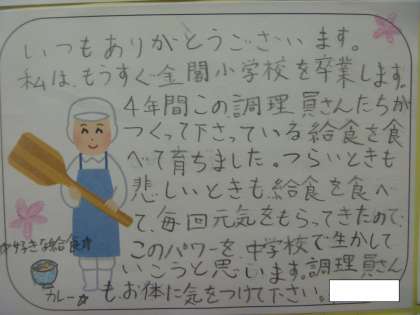 いつもありがとうございます。
私は、もうすぐ金闇小学校を卒業します。
4年間この調理員さんたちが
つくって下さっている給食を食
べて育ちました。つらいときも
悲しいときも、給食を食べ
て、毎回元気をもらってきたので、
このパワーを、中学校で生かして
いこうと思います。調理員さん
も、お体に気をつけて下さい。
好きな給食
カレー